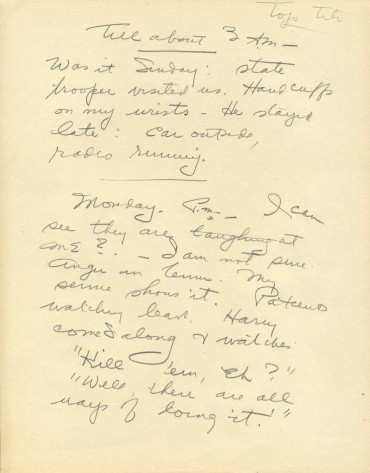 Tojo Tito
Till about 3 A.M. —
Was it Sunday: state
trooper visited us. Handcuffs
on my wrists — He stayed
late: car outside,
radio running.
Monday. P.M. — I can
see they are laughing at
me? — I am not sure.
Anger in tennis. My
serve shows it. Patients
watching leave. Harry
comes along & watches.
"Kill 'em, Eh?"
"Well, there are all
ways of losing it!"